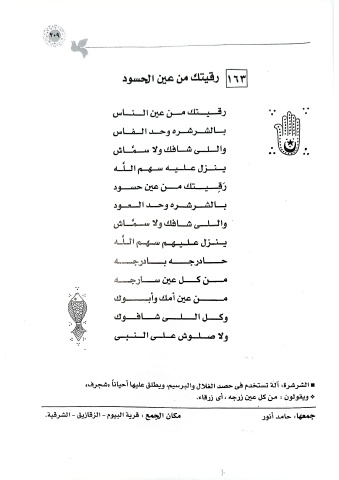 ٢٠٩
١٦٣ رقيتك من عين الحسود
رقيتك من عين الناس
بالشرشره وحد الفاس
واللى شافك ولا سماش
ينزل عليه سهم الله
رقيتك من عين حسود
بالشرشره وحد العود
واللى شافك ولا سماش
ينزل عليهم سهم الله
حادرجه بادرجه
من كل عين سارجه
من عين أمك وأبوك
وكل اللى شافوك
ولا صلوش على النبى
■ الشرشرة، آلة تستخدم فى حصد الغلال والبرسيم، ويطلق عليها أحياناً «شجرف»
❖ ويقولون : من كل عين زرجه، أى زرقاء.
جمعها، حامد أنور مكان الجمع : قرية البيوم - الزقازيق - الشرقية.